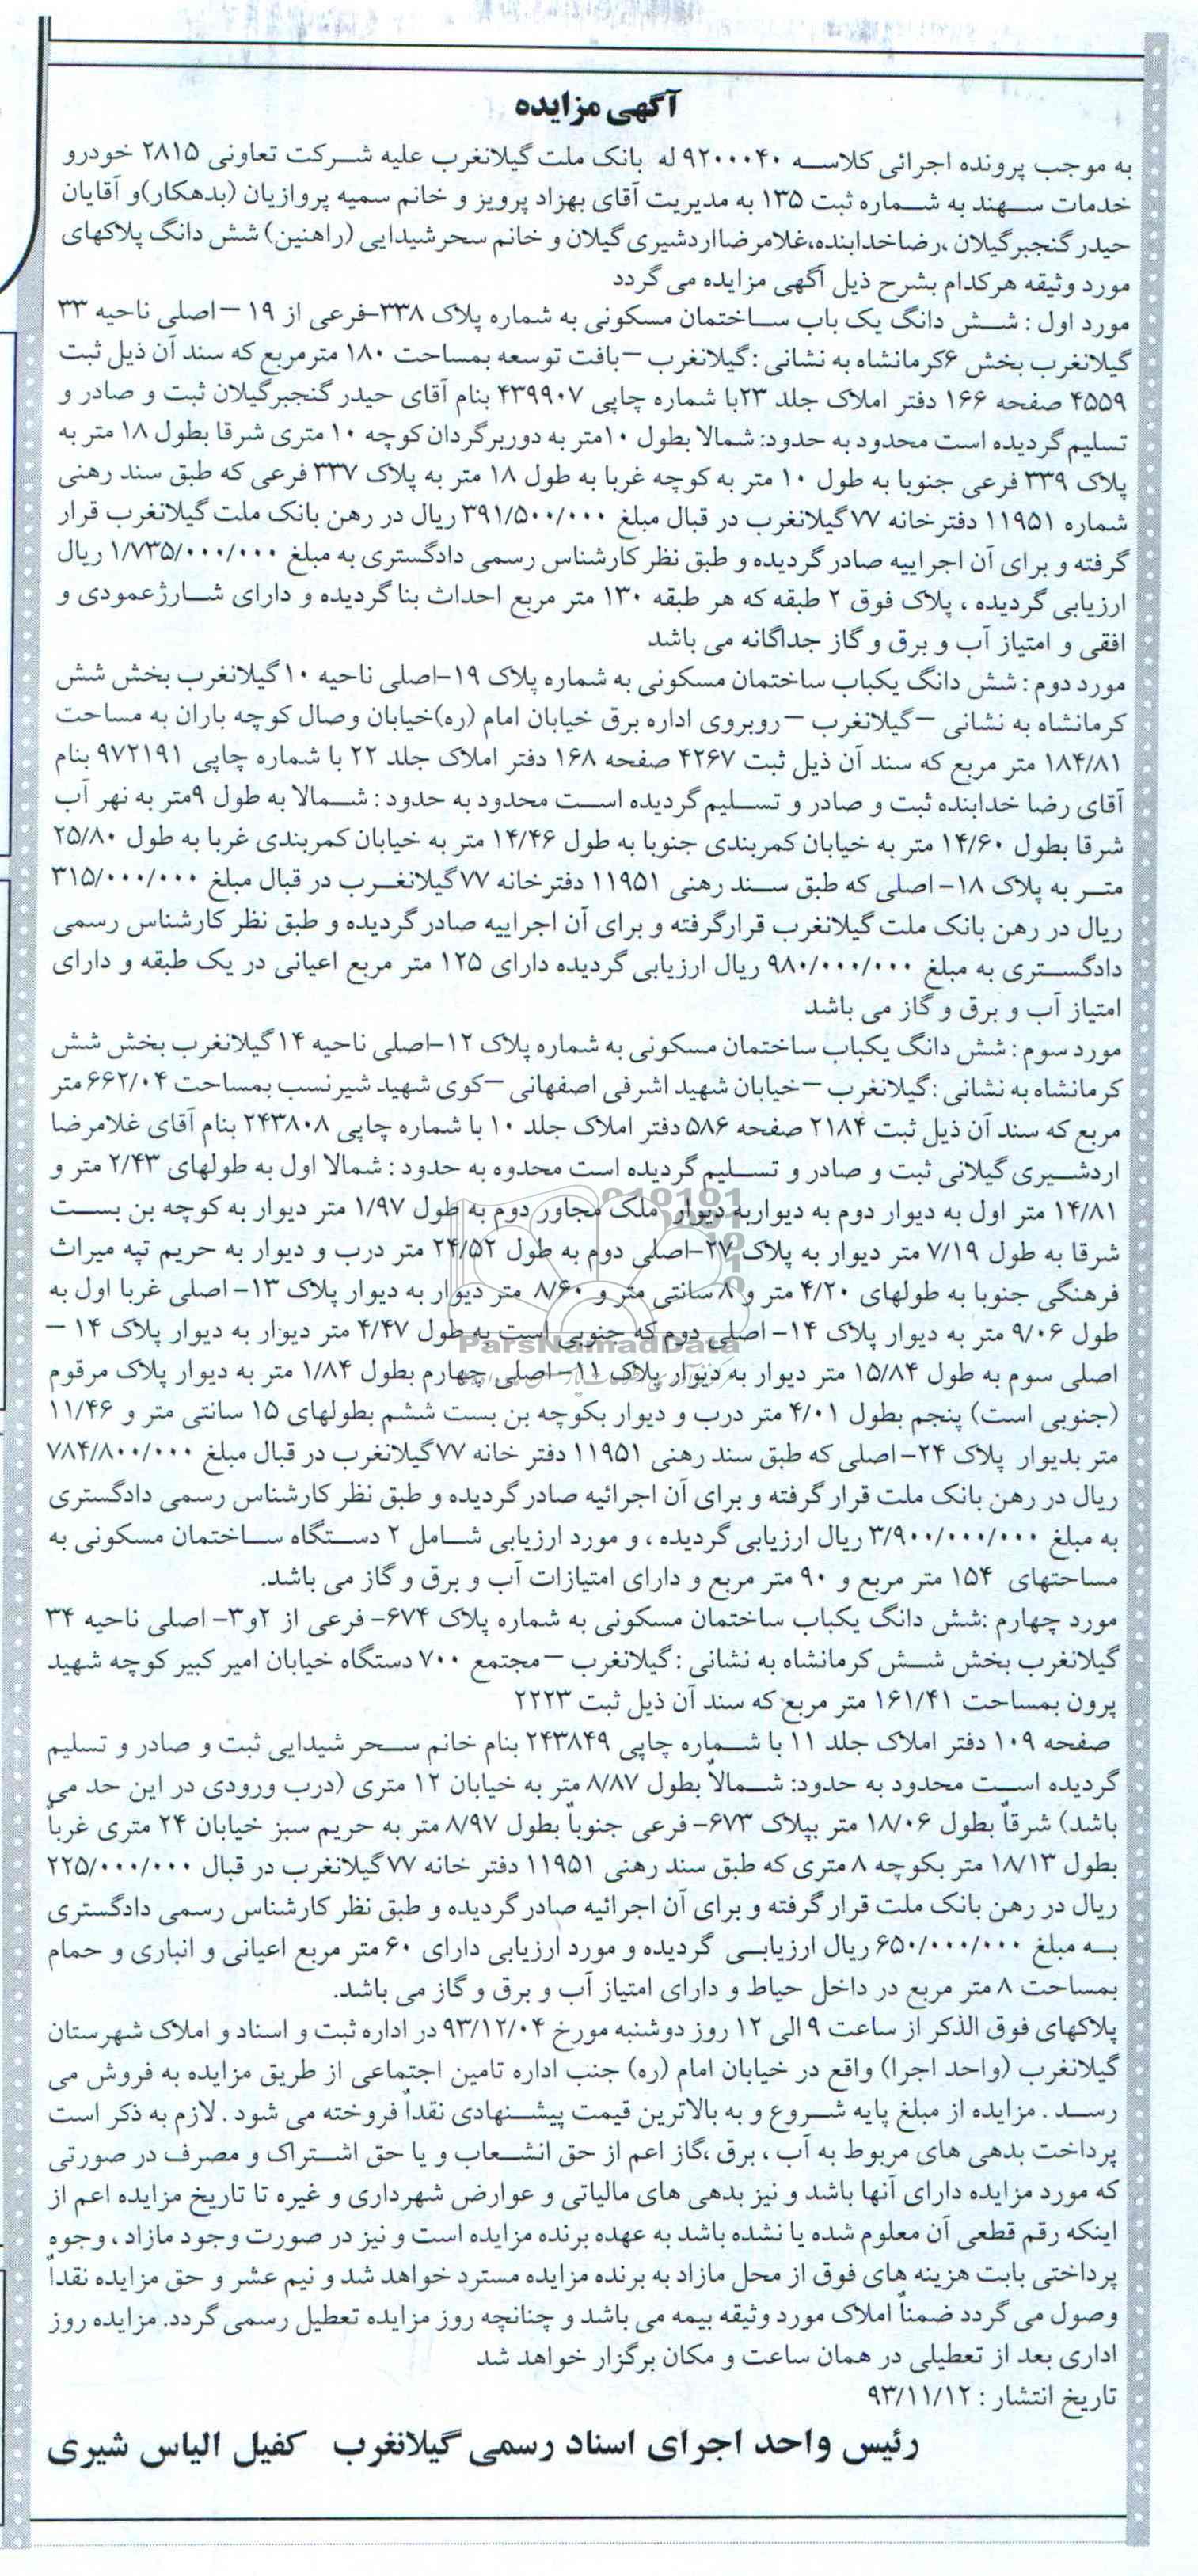 آگهی مزایده
به موجب پرونده اجرائی کلاسه ۹۲۰۰۰۴۰ له بانک ملت گیلانغرب علیه شرکت تعاونی ۲۸۱۵ خودرو
خدمات سهند به شماره ثبت ۱۳۵ به مدیریت آقای بهزاد پرویز و خانم سمیه پروازیان (بدهکار)و آقایان
حیدر گنجبرگیلان ،رضاخدابنده،غلامرضااردشیری گیلان و خانم سحرشیدایی (راهنین) شش دانگ پلاکهای
مورد وثیقه هرکدام بشرح ذیل آگهی مزایده می گردد
مورد اول : شش دانگ یک باب ساختمان مسکونی به شماره پلاک ۳۳۸-فرعی از ۱۹ –اصلی ناحیه ۳۳
گیلانغرب بخش ۶کرمانشاه به نشانی :گیلانغرب –بافت توسعه بمساحت ۱۸۰ مترمربع که سند آن ذیل ثبت
۴۵۵۹ صفحه ۱۶۶ دفتر املاک جلد ۲۳با شماره چاپی ۴۳۹۹۰۷ بنام آقای حیدر گنجبرگیلان ثبت و صادر و
تسلیم گردیده است محدود به حدود: شمالا بطول ۱۰متر به دوربرگردان کوچه ۱۰ متری شرقا بطول ۱۸ متر به
پلاک ۳۳۹ فرعی جنوبا به طول ۱۰ متر به کوچه غربا به طول ۱۸ متر به پلاک ۳۳۷ فرعی که طبق سند رهنی
شماره ۱۱۹۵۱ دفترخانه ۷۷گیلانغرب در قبال مبلغ ۳۹۱/۵۰۰/۰۰۰ ریال در رهن بانک ملت گیلانغرب قرار
گرفته و برای آن اجراییه صادر گردیده و طبق نظر کارشناس رسمی دادگستری به مبلغ ۱/۷۳۵/۰۰۰/۰۰۰ ریال
ارزیابی گردیده ، پلاک فوق ۲ طبقه که هر طبقه ۱۳۰ متر مربع احداث بنا گردیده و دارای شارژعمودی و
افقی و امتیاز آب و برق و گاز جداگانه می باشد
مورد دوم : شش دانگ یکباب ساختمان مسکونی به شماره پلاک ۱۹-اصلی ناحیه ۱۰گیلانغرب بخش شش
کرمانشاه به نشانی –گیلانغرب –روبروی اداره برق خیابان امام (ره)خیابان وصال کوچه باران به مساحت
۱۸۴/۸۱ متر مربع که سند آن ذیل ثبت ۴۲۶۷ صفحه ۱۶۸ دفتر املاک جلد ۲۲ با شماره چاپی ۹۷۲۱۹۱ بنام
آقای رضا خدابنده ثبت و صادر و تسلیم گردیده است محدود به حدود : شمالا به طول ۹متر به نهر آب
شرقا بطول ۱۴/۶۰ متر به خیابان کمربندی جنوبا به طول ۱۴/۴۶ متر به خیابان کمربندی غربا به طول ۲۵/۸۰
متر به پلاک ۱۸- اصلی که طبق سند رهنی ۱۱۹۵۱ دفترخانه ۷۷گیلانغرب در قبال مبلغ ۳۱۵/۰۰۰/۰۰۰
ریال در رهن بانک ملت گیلانغرب قرارگرفته و برای آن اجراییه صادر گردیده و طبق نظر کارشناس رسمی
دادگستری به مبلغ ۹۸۰/۰۰۰/۰۰۰ ریال ارزیابی گردیده دارای ۱۲۵ متر مربع اعیانی در یک طبقه و دارای
امتیاز آب و برق و گاز می باشد
مورد سوم : شش دانگ یکباب ساختمان مسکونی به شماره پلاک ۱۲-اصلی ناحیه ۱۴گیلانغرب بخش شش
کرمانشاه به نشانی :گیلانغرب –خیابان شهید اشرفی اصفهانی –کوی شهید شیرنسب بمساحت ۶۶۲/۰۴ متر
مربع که سند آن ذیل ثبت ۲۱۸۴ صفحه ۵۸۶ دفتر املاک جلد ۱۰ با شماره چاپی ۲۴۳۸۰۸ بنام آقای غلامرضا
اردشیری گیلانی ثبت و صادر و تسلیم گردیده است محدوه به حدود : شمالا اول به طولهای ۲/۴۳ متر و
۱۴/۸۱ متر اول به دیوار دوم به دیواربه دیوار ملک مجاور دوم به طول ۱/۹۷ متر دیوار به کوچه بن بست
شرقا به طول ۷/۱۹ متر دیوار به پلاک ۲۷-اصلی دوم به طول ۲۴/۵۲ متر درب و دیوار به حریم تپه میراث
فرهنگی جنوبا به طولهای ۴/۲۰ متر و ۸ سانتی متر و ۸/۶۰ متر دیوار به دیوار پلاک ۱۳- اصلی غربا اول به
طول ۹/۰۶ متر به دیوار پلاک ۱۴- اصلی دوم که جنوبی است به طول ۴/۴۷ متر دیوار به دیوار پلاک ۱۴ –
ParsNamadData
اصلی سوم به طول ۱۵/۸۴ متر دیوار به دیوار پلاک ۱۱- اصلی چهارم بطول ۱/۸۴ متر به دیوار پلاک مرقوم
(جنوبی است) پنجم بطول ۴/۰۱ متر درب و دیوار بکوچه بن بست ششم بطولهای ۱۵ سانتی متر و ۱۱/۴۶
متر بدیوار پلاک ۲۴- اصلی که طبق سند رهنی ۱۱۹۵۱ دفتر خانه ۷۷گیلانغرب در قبال مبلغ ۷۸۴/۸۰۰/۰۰۰
ریال در رهن بانک ملت قرار گرفته و برای آن اجرائیه صادر گردیده و طبق نظر کارشناس رسمی دادگستری
به مبلغ ۳/۹۰۰/۰۰۰/۰۰۰ ریال ارزیابی گردیده ، و مورد ارزیابی شامل ۲ دستگاه ساختمان مسکونی به
مساحتهای ۱۵۴ متر مربع و ۹۰ متر مربع و دارای امتیازات آب و برق و گاز می باشد.
مورد چهارم :شش دانگ یکباب ساختمان مسکونی به شماره پلاک ۶۷۴- فرعی از ۲و۳- اصلی ناحیه ۳۴
گیلانغرب بخش شش کرمانشاه به نشانی : گیلانغرب –مجتمع ۷۰۰ دستگاه خیابان امیر کبیر کوچه شهید
پرون بمساحت ۱۶۱/۴۱ متر مربع که سند آن ذیل ثبت ۲۲۲۳
صفحه ۱۰۹ دفتر املاک جلد ۱۱ با شماره چاپی ۲۴۳۸۴۹ بنام خانم سحر شیدایی ثبت و صادر و تسلیم
گردیده است محدود به حدود: شمالاً بطول ۸/۸۷ متر به خیابان ۱۲ متری (درب ورودی در این حد می
باشد) شرقاً بطول ۱۸/۰۶ متر بپلاک ۶۷۳- فرعی جنوباً بطول ۸/۹۷ متر به حریم سبز خیابان ۲۴ متری غرباً
بطول ۱۸/۱۳ متر بکوچه ۸ متری که طبق سند رهنی ۱۱۹۵۱ دفتر خانه ۷۷گیلانغرب در قبال ۲۲۵/۰۰۰/۰۰۰
ریال در رهن بانک ملت قرار گرفته و برای آن اجرائیه صادر گردیده و طبق نظر کارشناس رسمی دادگستری
به مبلغ ۶۵۰/۰۰۰/۰۰۰ ریال ارزیابی گردیده و مورد ارزیابی دارای ۶۰ متر مربع اعیانی و انباری و حمام
بمساحت ۸ متر مربع در داخل حیاط و دارای امتیاز آب و برق و گاز می باشد.
پلاکهای فوق الذکر از ساعت ۹ الی ۱۲ روز دوشنبه مورخ ۹۳/۱۲/۰۴ در اداره ثبت و اسناد و املاک شهرستان
گیلانغرب (واحد اجرا) واقع در خیابان امام (ره) جنب اداره تامین اجتماعی از طریق مزایده به فروش می
رسد . مزایده از مبلغ پایه شروع و به بالاترین قیمت پیشنهادی نقداً فروخته می شود . لازم به ذکر است
پرداخت بدهی های مربوط به آب ، برق ،گاز اعم از حق انشعاب و یا حق اشتراک و مصرف در صورتی
که مورد مزایده دارای آنها باشد و نیز بدهی های مالیاتی و عوارض شهرداری و غیره تا تاریخ مزایده اعم از
اینکه رقم قطعی آن معلوم شده یا نشده باشد به عهده برنده مزایده است و نیز در صورت وجود مازاد ، وجوه
پرداختی بابت هزینه های فوق از محل مازاد به برنده مزایده مسترد خواهد شد و نیم عشر و حق مزایده نقداً
وصول می گردد ضمناً املاک مورد وثیقه بیمه می باشد و چنانچه روز مزایده تعطیل رسمی گردد. مزایده روز
اداری بعد از تعطیلی در همان ساعت و مکان برگزار خواهد شد
تاریخ انتشار : ۹۳/۱۱/۱۲
رئیس واحد اجرای اسناد رسمی گیلانغرب کفیل الیاس شیری